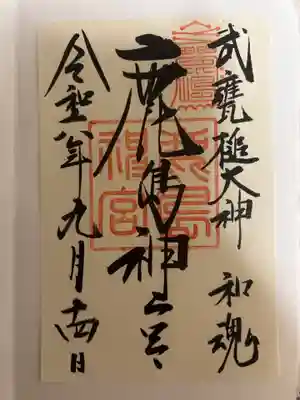 武甕槌大神 和魂
鹿島神宮
鹿島神宮
令和 年九月十四日